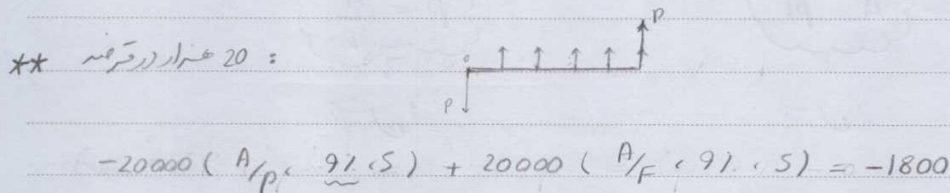 P
** 20 هزار در قرضه :
P
-20000 ( A/P، 9%، 5 ) + 20000 ( A/F، 9%، 5 ) = -1800